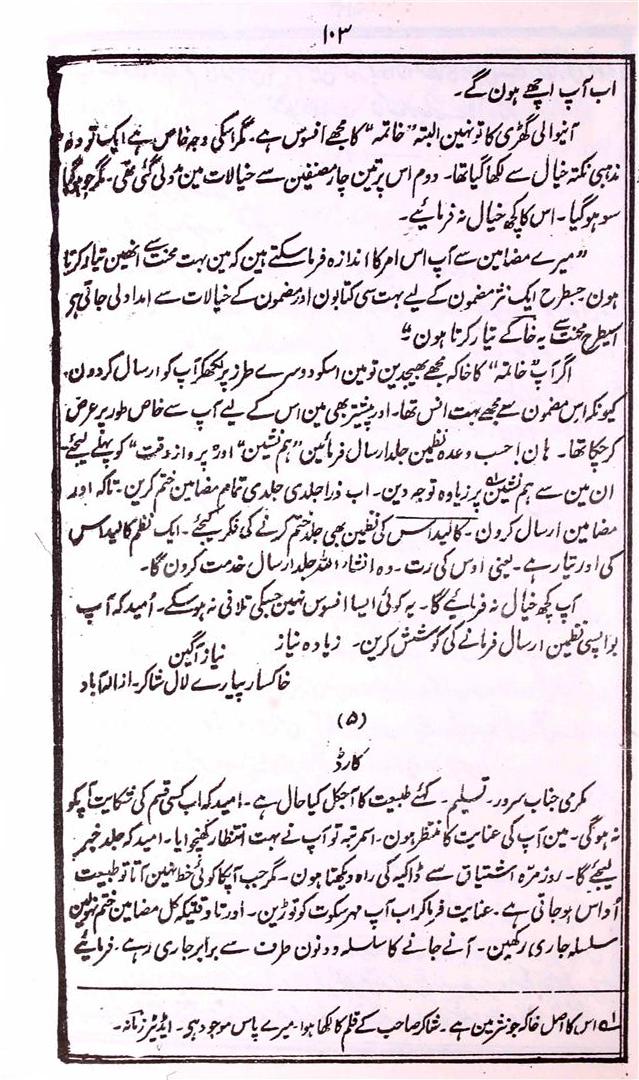 ۱۰۳
اب آپ اچھے ہون گے۔
آنیوالی گھڑی کا تو نہین البتہ "خاتمہ" کا مجھے افسوس ہے۔ مگر اسکی وجہ خاص ہے ایک تو وہ
مذہبی نکتہ خیال سے لکھا گیا تھا۔ دوم اس پر تین چار مصنفین سے خیالات مین مدد لی گئی تھی۔ مگر جو ہو گیا
سو ہو گیا۔ اس کا کچھ خیال نہ فرمائیے۔
"میرے مضامین سے آپ اس امر کا اندازہ فرما سکتے ہین کہ مین بہت محنت سے انھین تیار کرتا
ہون جسطرح ایک نثر مضمون کے لیے بہت سی کتابون اور مضمون کے خیالات سے امداد لی جاتی ہے
اسیطرح محنت سے یہ خاکے تیار کرتا ہون"
اگر آپ "خاتمہ" کا خاکہ مجھے بھیجدین تو مین اسکو دوسرے طرز پر لکھکر آپ کو ارسال کردون۔
کیونکہ اس مضمون سے مجھے بہت انس تھا۔ اور پیشتر بھی مین اس کے لیے آپ سے خاص طور پر عرض
کر چکا تھا۔ ہان! حسب وعدہ نظمین جلد ارسال فرمائین "ہم نشین" اور "پرواز وقت" کو پہلے لیجئے۔
ان مین سے ہم نشین پر زیادہ توجہ دین۔ اب ذرا جلدی جلدی تمام مضامین ختم کرین۔ تاکہ اور
مضامین ارسال کرون۔ کالیداس کی نظمین بھی جلد ختم کرنے کی فکر کیجئے۔ ایک نظم کالیداس
کی اور تیار ہے۔ یعنی اوس کی رت۔ وہ انشاء اللہ جلد ارسال خدمت کرون گا۔
آپ کچھ خیال نہ فرمائیے گا۔ یہ کوئی ایسا افسوس نہین جسکی تلافی نہ ہو سکے۔ اُمید کہ آپ
بواپسی نظمین ارسال فرمانے کی کوشش کرین۔ زیادہ نیاز
نیاز آگین
خاکسار پیارے لال شاکر۔ از الہ آباد
(۵)
کارڈ
مکرمی جناب سرور۔ تسلیم۔ کہئے طبیعت کا آجکل کیا حال ہے۔ امید کہ اب کسی قسم کی شکایت آپکو
نہ ہوگی۔ مین آپ کی عنایت کا منتظر ہون۔ اسمرتبہ تو آپ نے بہت انتظار کھچوایا۔ امید کہ جلد خبر
لیجئے گا۔ روزمرہ اشتیاق سے ڈاکیہ کی راہ دیکھتا ہون۔ مگر جب آپکا کوئی خط نہین آتا تو طبیعت
اُداس ہو جاتی ہے۔ عنایت فرما کر اب آپ مہر سکوت کو توڑین۔ اور تا وقتیکہ کل مضامین ختم نہولین
سلسلہ جاری رکھین۔ آنے جانے کا سلسلہ دونون طرف سے برابر جاری رہے۔ فرمائیے
لہ اس کا اصل خاکہ جو نثر مین ہے۔ شاکر صاحب کے قلم کا لکھا ہوا۔ میرے پاس موجود ہے۔ ایڈیٹر زمانہ۔